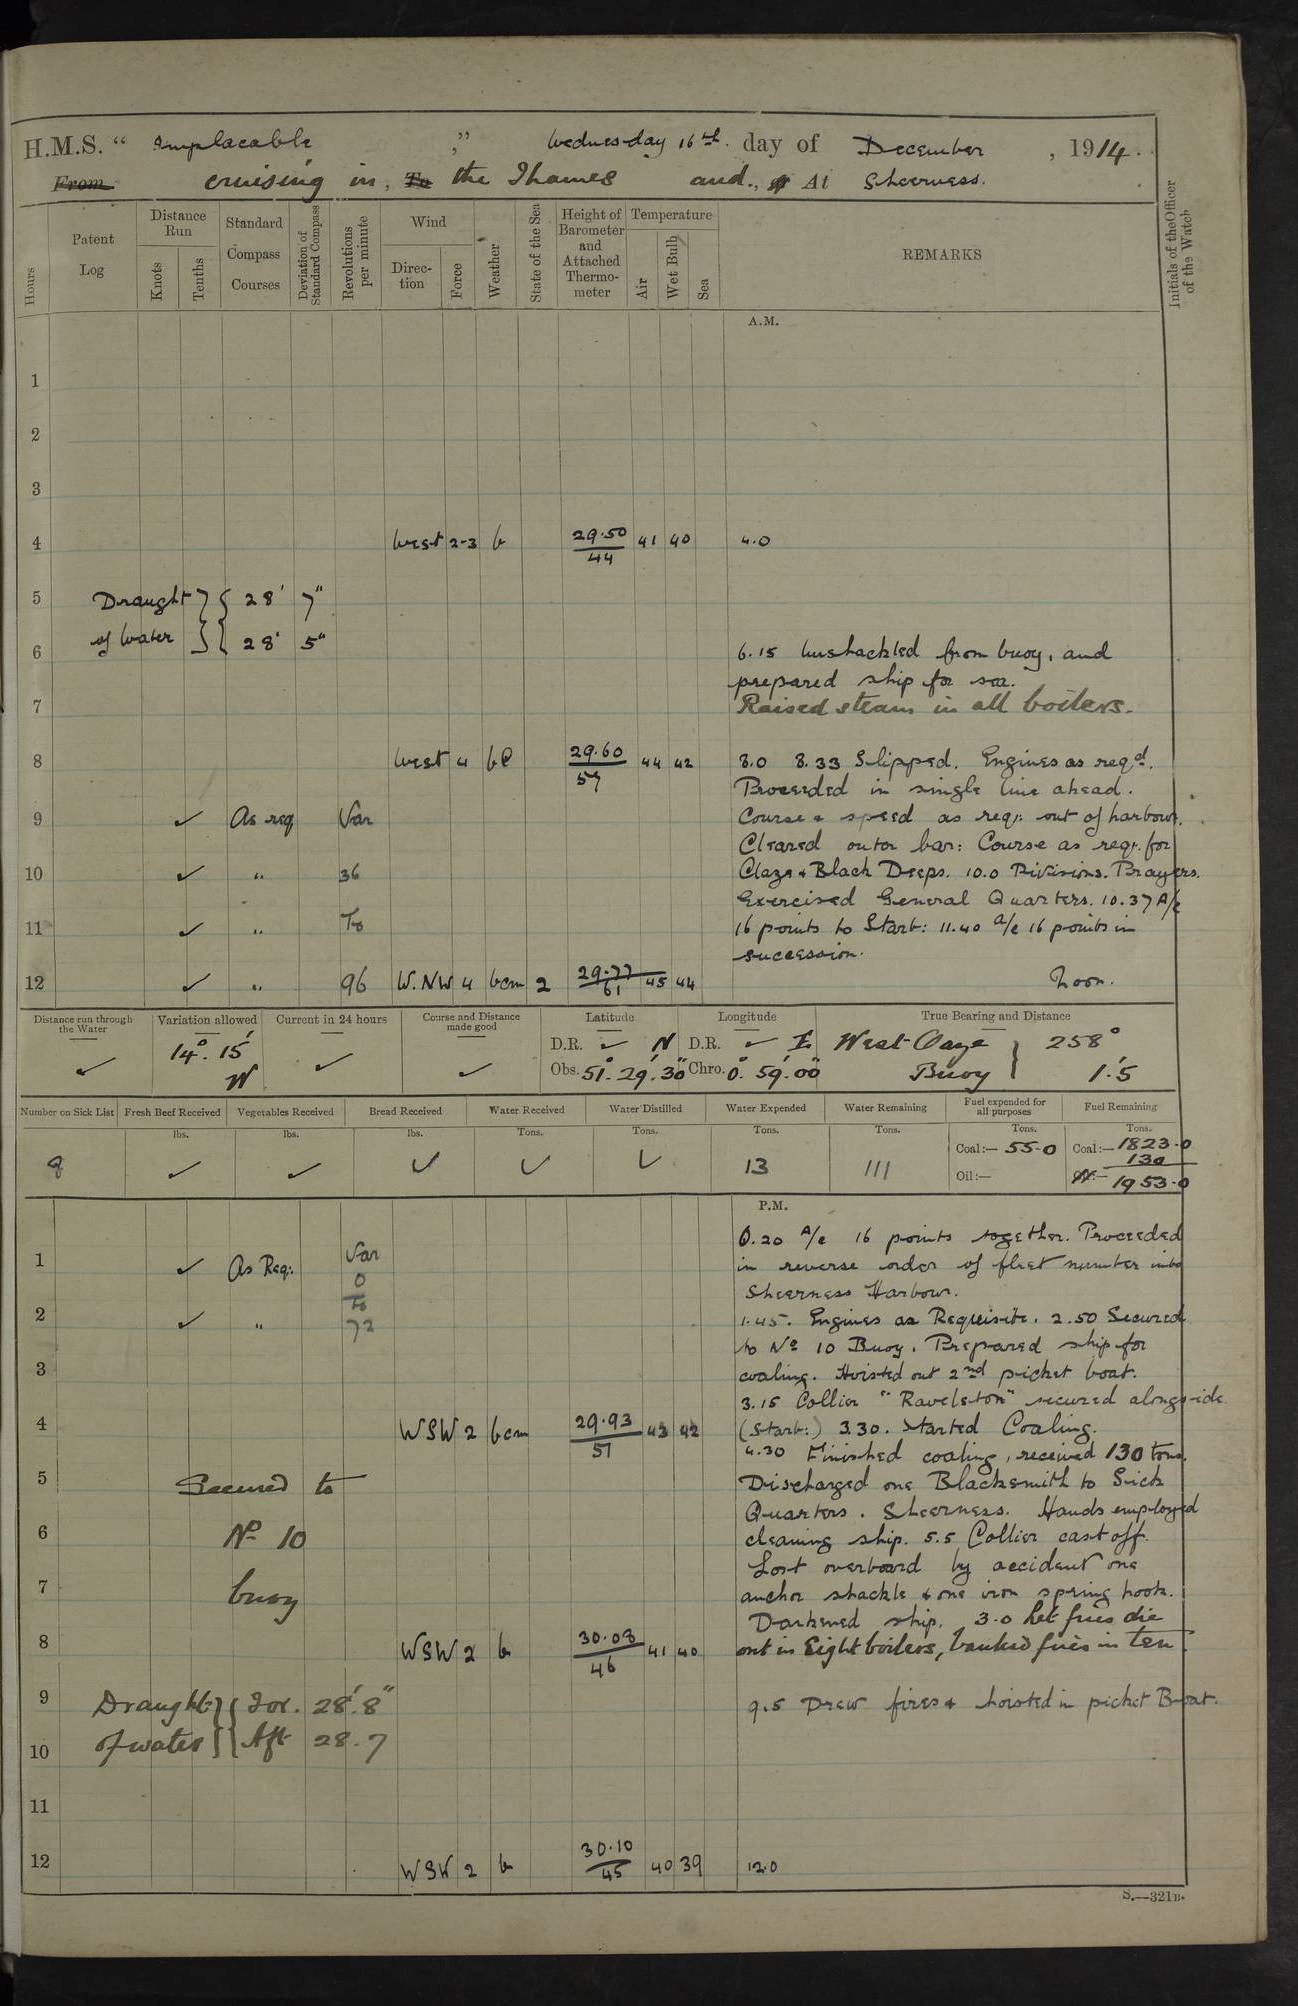 H.M.S. “ Implacable ,” Wednesday 16th. day of December , 1914.
From cruising in, To the Thames and., At Sheerness.
Hours
Patent Log
Distance Run
Knots
Tenths
Standard Compass Courses
Deviation of Standard Compass
Revolutions per minute
Wind
Direction
Force
Weather
State of the Sea
Height of Barometer and Attached Thermometer
Temperature
Air
Wet Bulb
Sea
REMARKS
Initials of the Officer of the Watch
A.M.
1
2
3
4 West 2-3 b 29.50 44 41 40 4.0
5 Draught 28' 7"
6 of Water 28' 5"
6.15 Unshackled from buoy, and
prepared ship for sea.
7 Raised steam in all boilers.
8 West 4 bc 29.60 57 44 42 8.0 8.33 Slipped. Engines as reqd.
Proceeded in single line ahead.
9 ✓ As req Var Course & speed as reqr. out of harbour.
Cleared outer bar: Course as reqr. for
10 ✓ " 36 & Black Deeps. 10.0 Divisions. Prayers.
Exercised General Quarters. 10.37 A/c
11 ✓ " To 16 points to Starb: 11.40 a/c 16 points in
succession.
12 ✓ " 96 W.NW 4 bcm 2 29.77 61 45 44 Noon.
Distance run through the Water
Variation allowed
Current in 24 hours
Course and Distance made good
Latitude
Longitude
True Bearing and Distance
✓ 14°. 15' W ✓ ✓
D.R. ✓ N D.R. ✓ E West Oaze Buoy 258°
Obs. 51°.29'.30" Chro. 0°. 59'.00" 1'.5
Number on Sick List
Fresh Beef Received
Vegetables Received
Bread Received
Water Received
Water Distilled
Water Expended
Water Remaining
Fuel expended for all purposes
Fuel Remaining
lbs. lbs. lbs. Tons. Tons. Tons. Tons. Tons. Tons.
✓ ✓ ✓ ✓ ✓ 13 111
Coal:— 55.0 Coal:— 1823.0
130
Oil:— 1953.0
P.M.
0.20 A/c 16 points together. Proceeded
1 ✓ As Req: Var 0 in reverse order of fleet number into
Sheerness Harbour.
To
2 ✓ " 72 1.45. Engines as Requisite. 2.50 Secured
to No 10 Buoy. Prepared ship for
3 coaling. Hoisted out 2nd picket boat.
3.15 Collier "Ravelston" secured alongside
4 WSW 2 bcm 29.93 51 43 42 (Starb:) 3.30. Started Coaling.
4.30 Finished coaling, received 130 tons.
5 Secured to Discharged one Blacksmith to Sick
Quarters. Sheerness. Hands employed
6 No 10 cleaning ship. 5.5 Collier cast off.
Lost overboard by accident one
7 buoy anchor shackle & one iron spring hook.
Darkened ship. 3.0 Let fires die
8 WSW 2 b 30.08 46 41 40 out in Eight boilers, banked fires in Ten.
9 Draught For. 28'.8" 9.5 Drew fires & hoisted in picket Boat.
10 of water Aft 28.7
11
12 WSW 2 b 30.10 45 40 39 12.0
S.—321B.